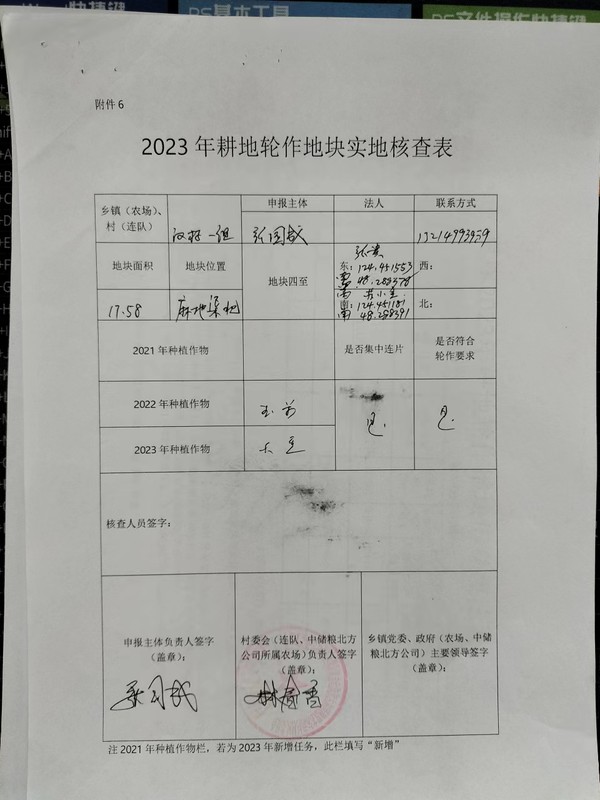 PS基本工具
PS文件操作快捷键
附件 6
2023 年耕地轮作地块实地核查表
乡镇（农场）、村（连队）
申报主体
法人
联系方式
一组
张国成
地块面积
地块位置
地块四至
东：124.451553
48.288378
西：
17.58
麻地梁
南：124.451181
48.288391
北：
2021 年种植作物
是否集中连片
是否符合轮作要求
2022 年种植作物
玉米
是
是
2023 年种植作物
大豆
核查人员签字：
申报主体负责人签字
（盖章）：
村委会（连队、中储粮北方
公司所属农场）负责人签字
（盖章）：
乡镇党委、政府（农场、中储
粮北方公司）主要领导签字
（盖章）：
注 2021 年种植作物栏，若为 2023 年新增任务，此栏填写“新增”